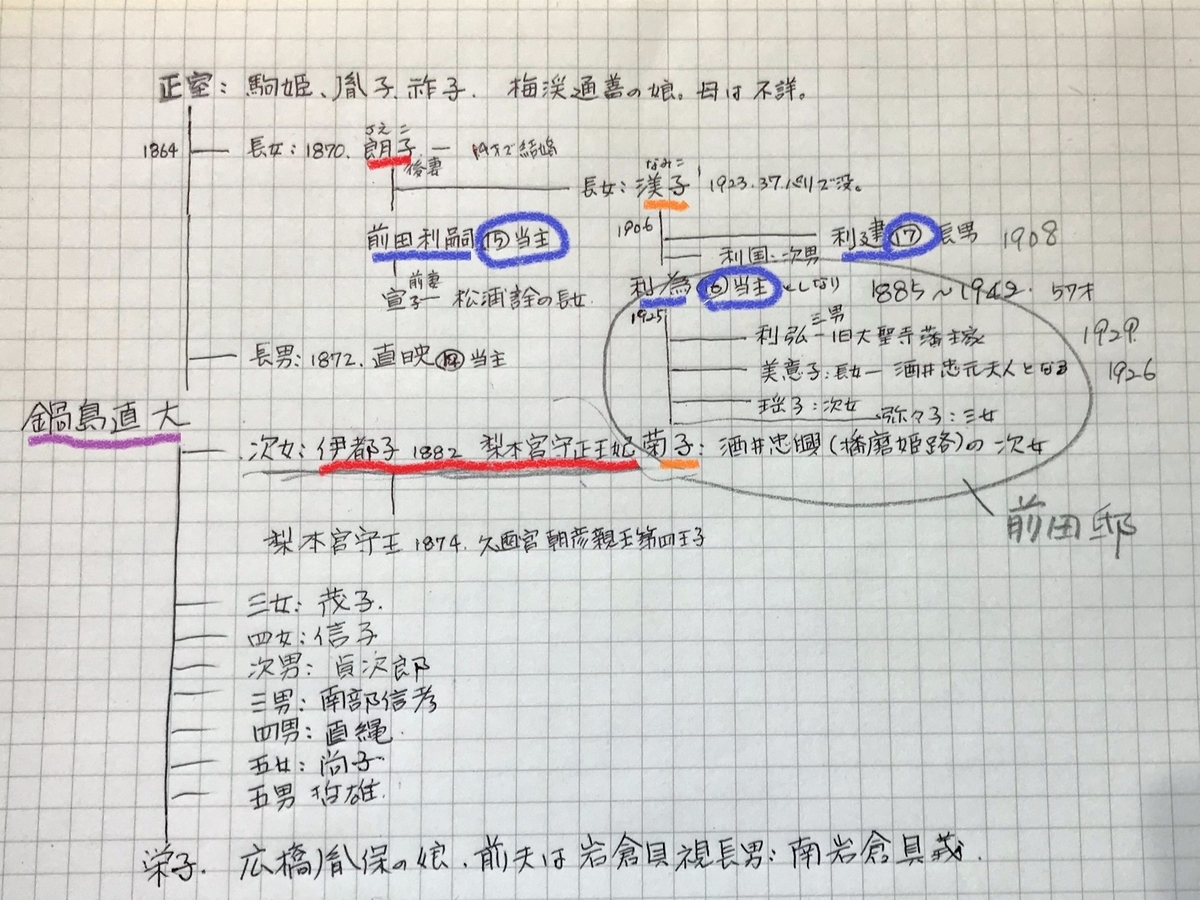 正室: 駒姫、胤子、祚子. 梅渓通善の娘。母は不詳。
1864
長女: 1870. 朗子 ― 19才で結婚
さえこ
後妻
長女: 漾子 1923. 37.パリで没。
なみこ
前田利嗣 ⑮当主
1906
利建 ⑰ 長男 1908
利国: 次男
前妻
宣子― 松浦詮の長女.
利為 ⑯当主 としなり 1885~1942. 57才
1925
三男
利弘―旧大聖寺藩主家 1929
長男: 1872. 直映 ⑫当主
美意子: 長女― 酒井忠元夫人となる 1926
瑶子: 次女
弥々子: 三女
鍋島直大
次女: 伊都子 1882 梨本宮守正王妃
菊子: 酒井忠興(播磨姫路)の次女
前田邸
梨本宮守王 1874. 久邇宮朝彦親王第四王子
三女: 茂子.
四女: 信子
次男: 貞次郎
三男: 南部信孝
四男: 直縄.
五女: 尚子
五男 哲雄.
栄子. 広橋胤保の娘. 前夫は岩倉具視長男: 南岩倉具義.